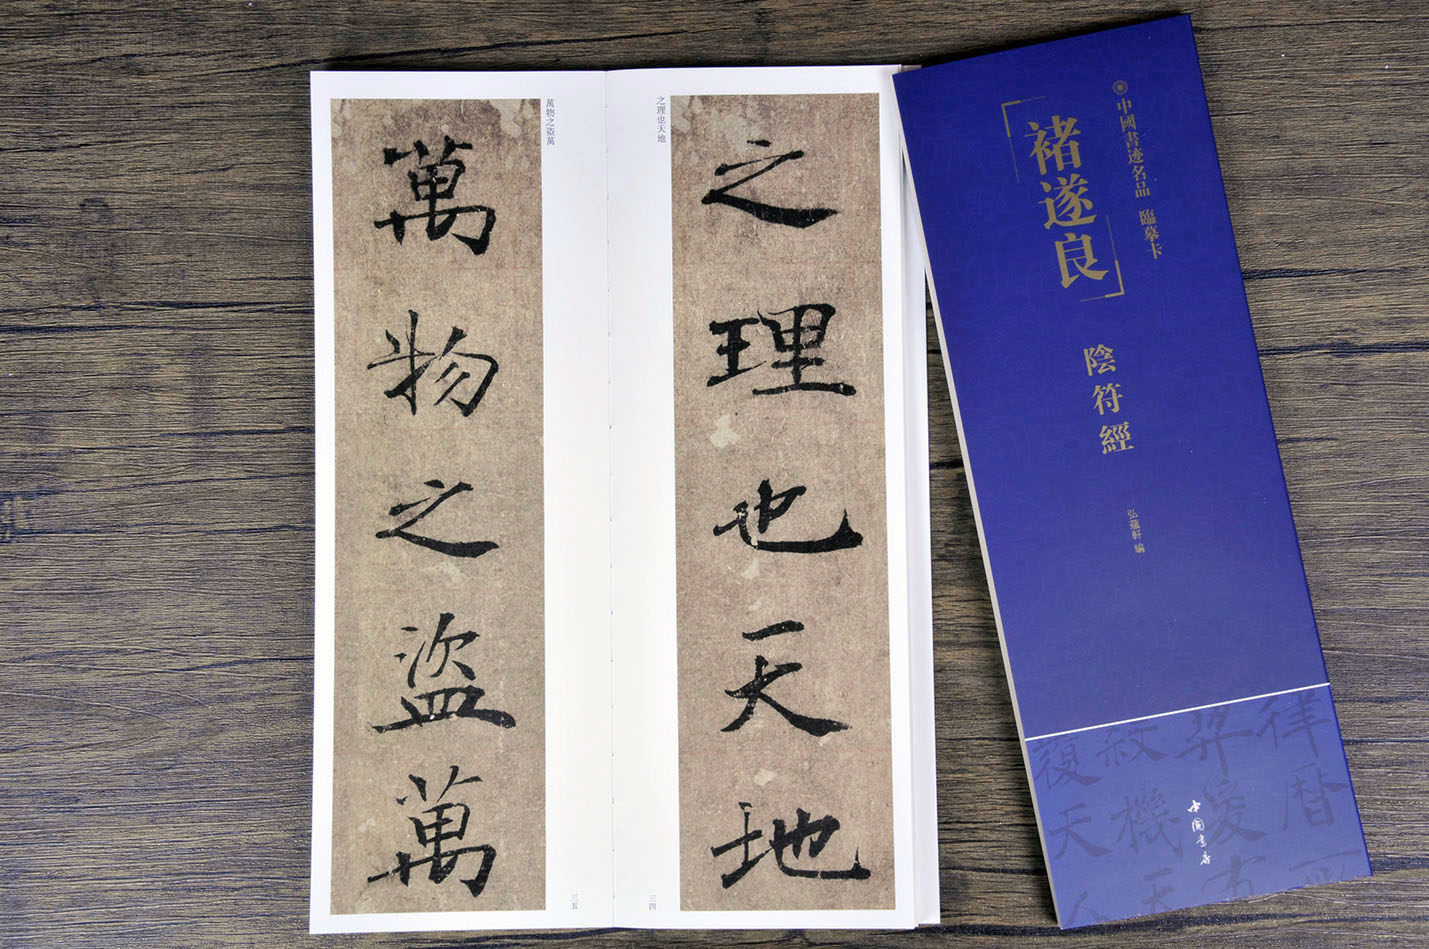 之理也天地
之理也天地
三四
萬物之盜萬
萬物之盜萬
三五
中國書迹名品 臨摹卡
褚遂良
陰符經
弘蘊軒 編
中国书店
律暦
爰
機天
復天人